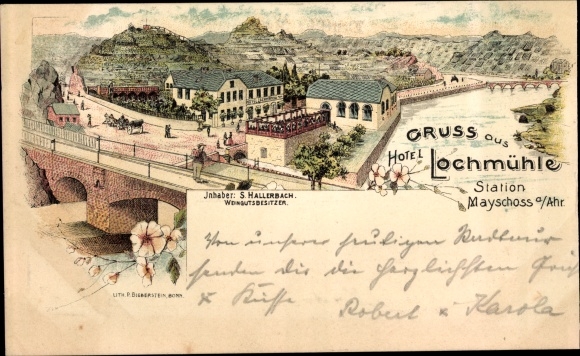 GRUSS aus
HOTEL Lochmühle
Station
Mayschoss a/Ahr.
Jnhaber: S. HALLERBACH.
WEINGUTSBESITZER.
LITH. P. BIEBERSTEIN, BONN.
Von unserer heutigen Radtour
senden dir die herzlichsten Grüße
& Küsse
Robert & Karola